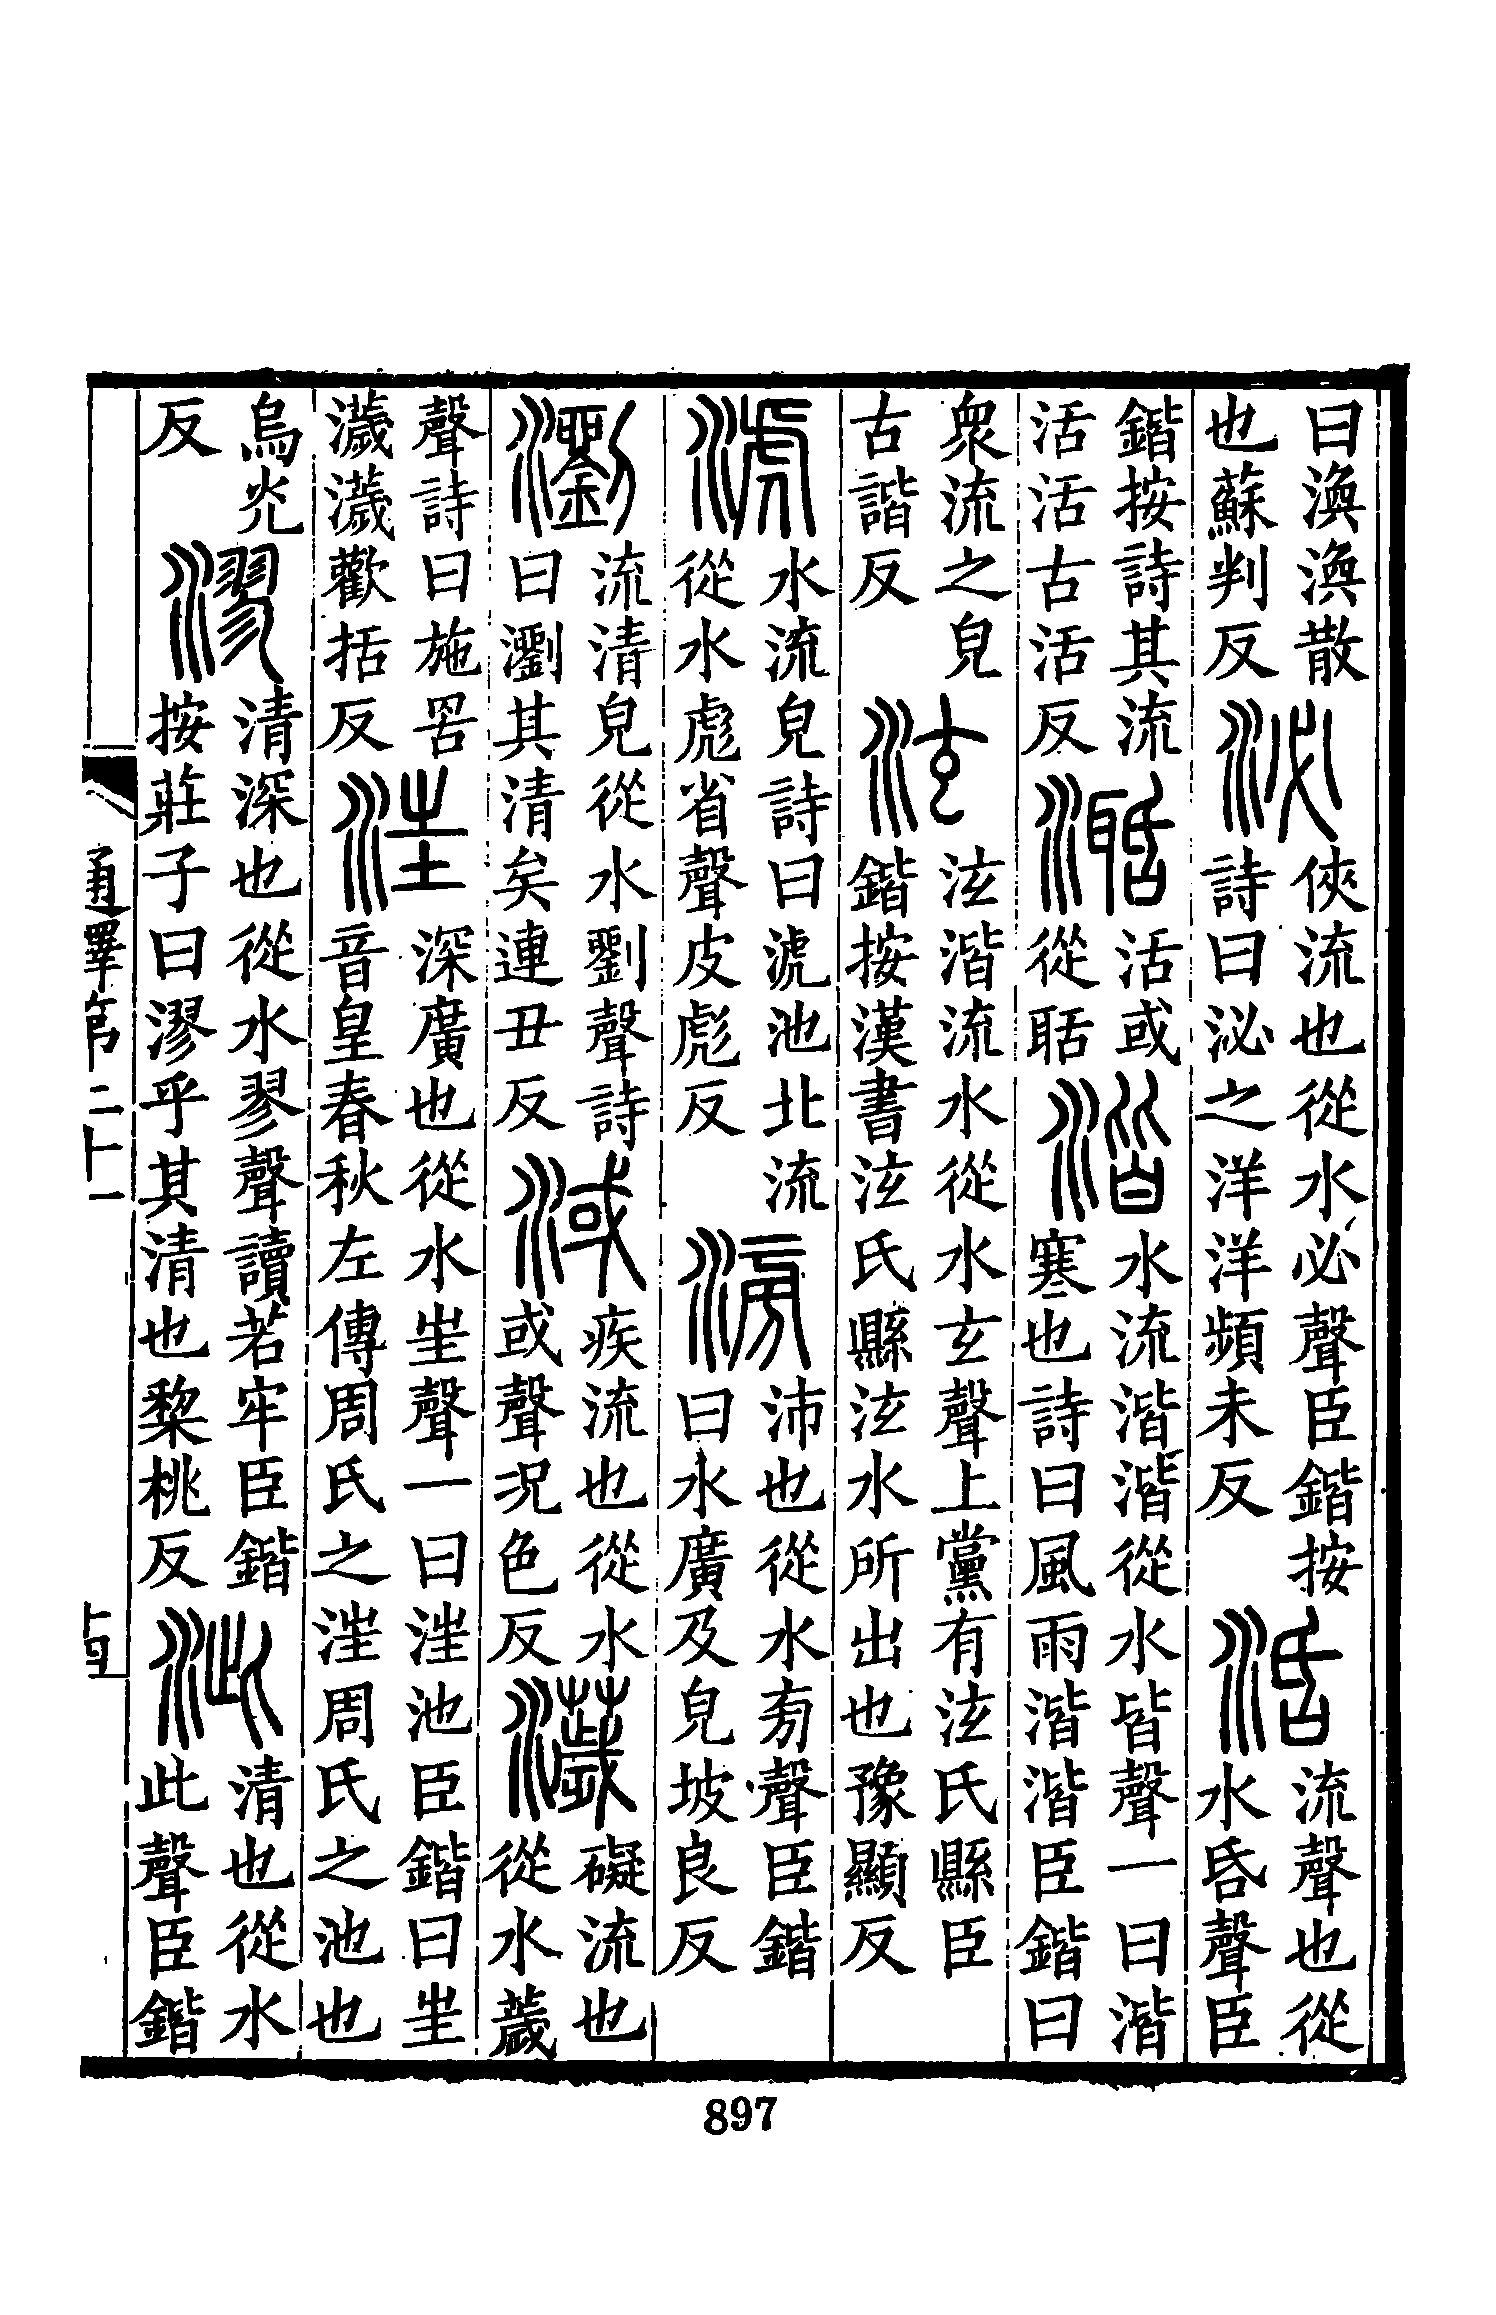 曰渙渙散也蘇判反泌俠流也從水必聲臣鍇按詩曰泌之洋洋頻未反活流聲也從水昏聲臣
鍇按詩其流活活古活反𣿅活或從聒湝水流湝湝從水皆聲一曰湝寒也詩曰風雨湝湝臣鍇曰
衆流之皃古諧反泫泫湝流水從水玄聲上黨有泫氏縣臣鍇按漢書泫氏縣泫水所出也豫顯反
淲水流皃詩曰淲池北流從水彪省聲皮彪反滂沛也從水㫄聲臣鍇曰水廣及皃坡良反
瀏流清皃從水劉聲詩曰瀏其清矣連丑反淢疾流也從水或聲況色反濊礙流也從水薉
聲詩曰施罟濊濊歡括反汪深廣也從水㞷聲一曰𣶈池臣鍇曰㞷音皇春秋左傳周氏之𣶈周氏之池也
烏光反漻清深也從水翏聲讀若牢臣鍇按莊子曰漻乎其清也黎桃反泚清也從水此聲臣鍇
通釋第二十一
897